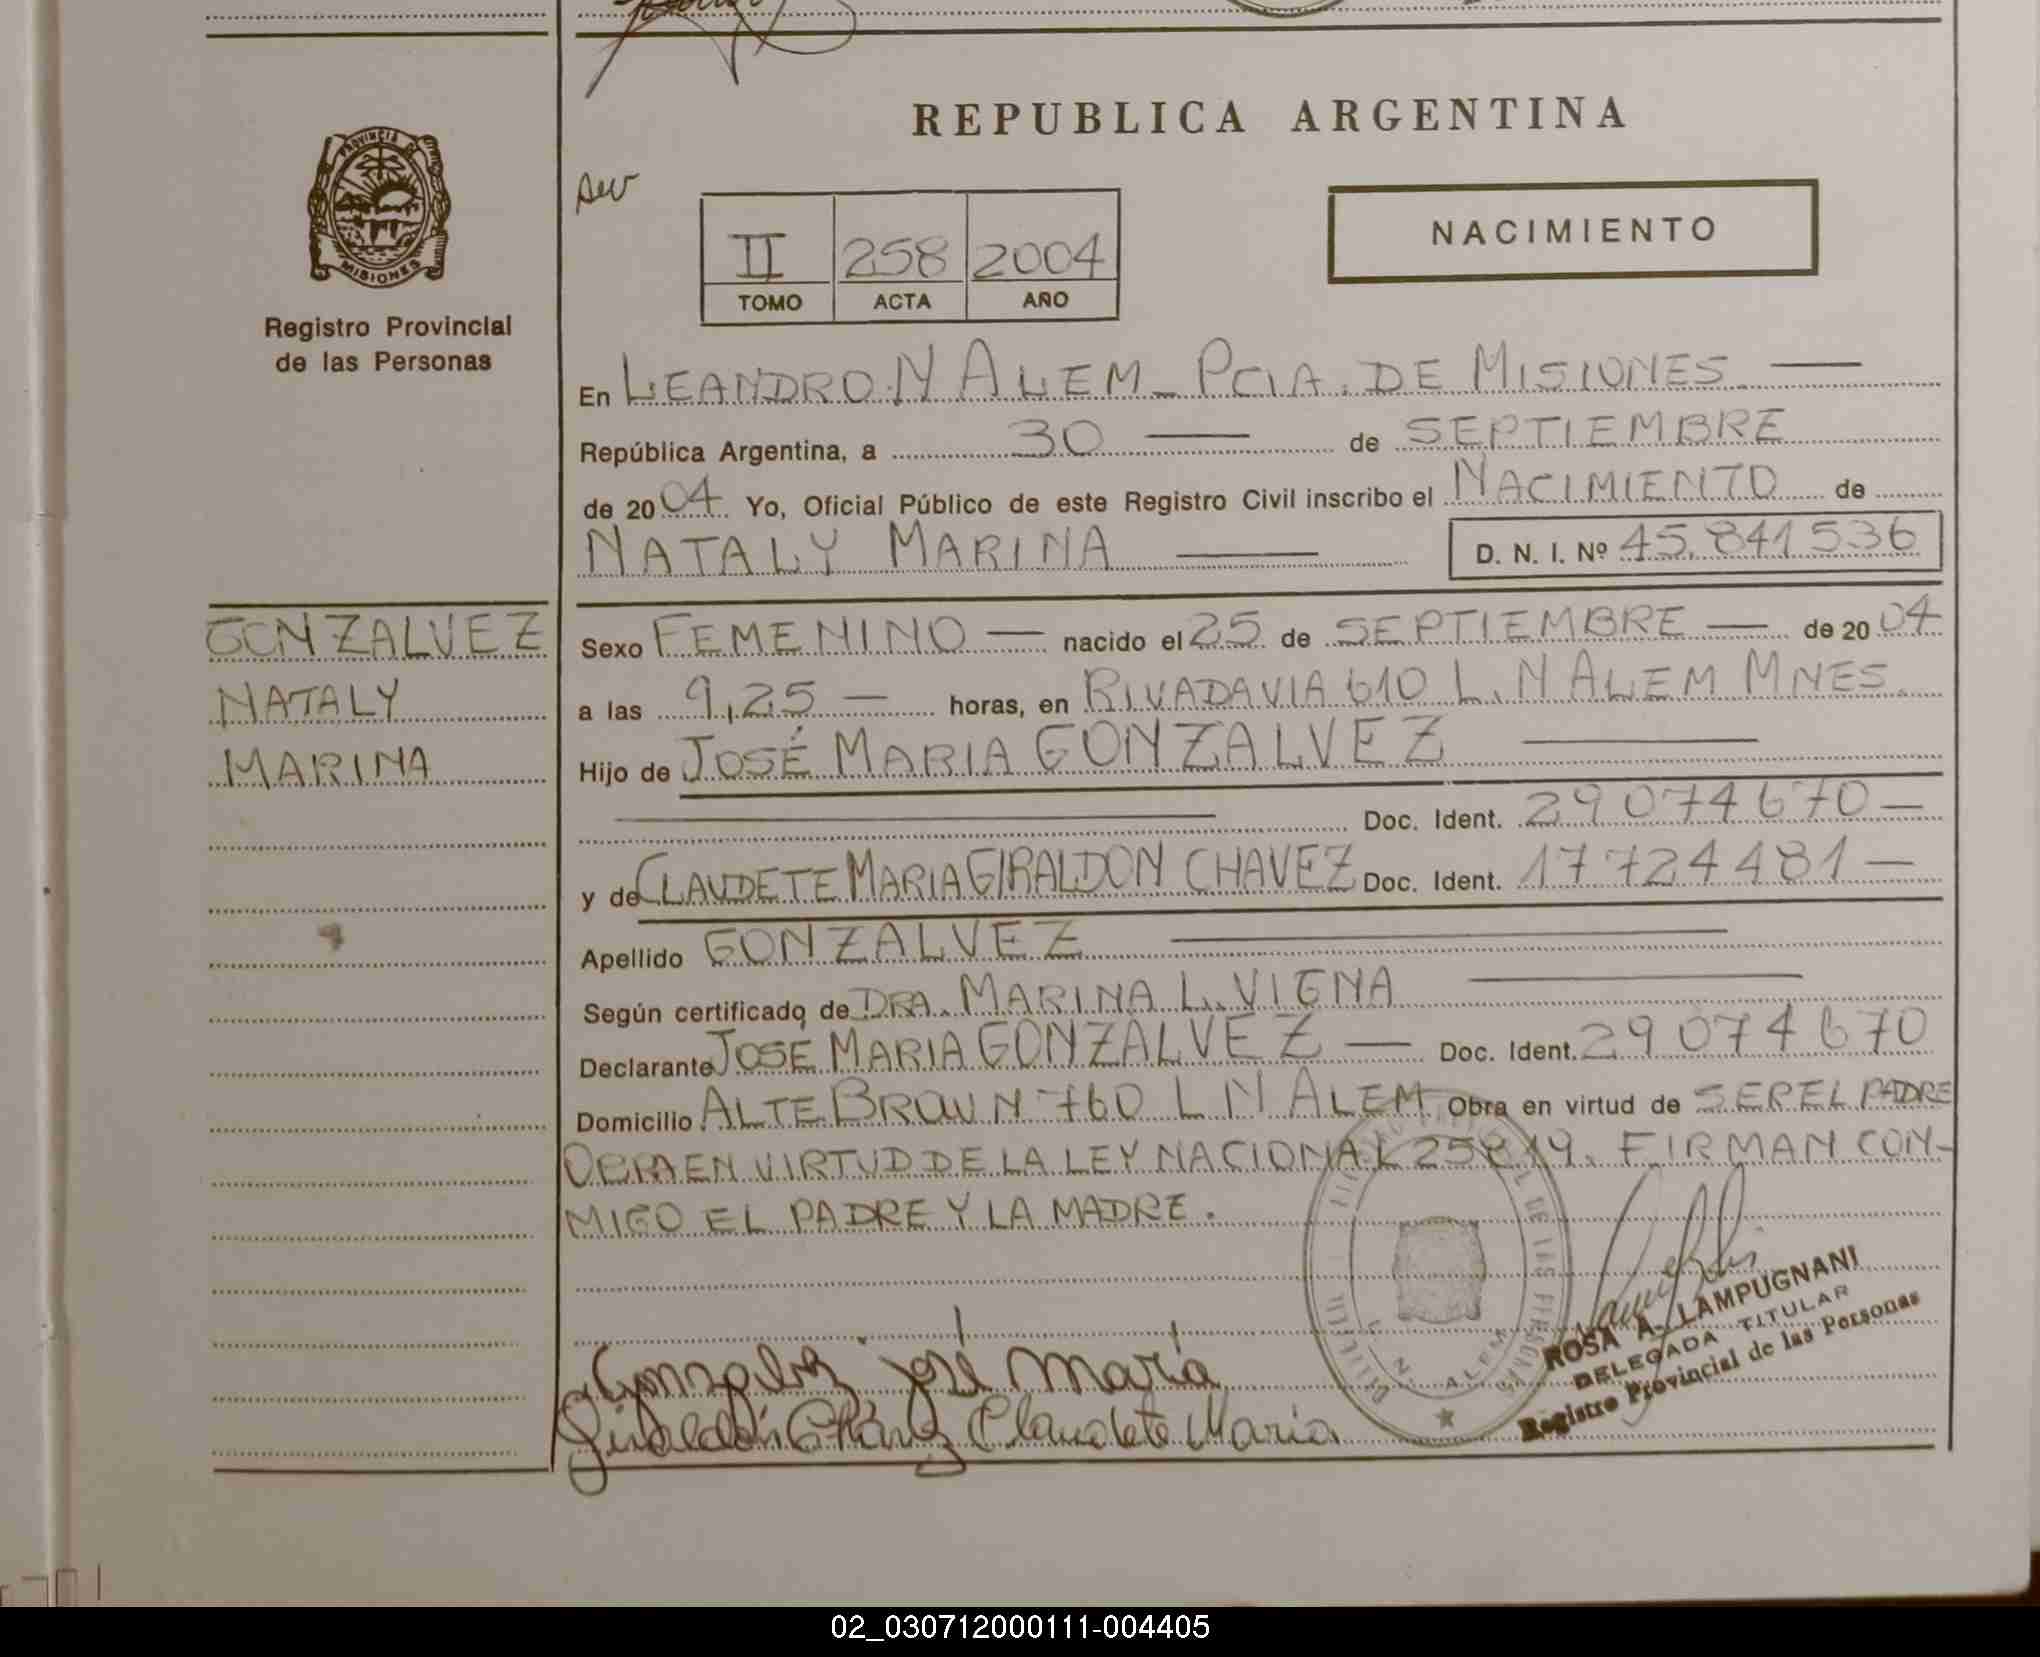 REPUBLICA ARGENTINA
PROVINCIA DE
MISIONES
Registro Provincial
de las Personas
NACIMIENTO
II 258 2004
TOMO ACTA AÑO
En LEANDRO N ALEM - PCIA. DE MISIONES. —
República Argentina, a 30 — de SEPTIEMBRE
de 2004 Yo, Oficial Público de este Registro Civil inscribo el NACIMIENTO de
NATALY MARINA — D. N. I. Nº 45.841536
GONZALVEZ
NATALY
MARINA
Sexo FEMENINO — nacido el 25 de SEPTIEMBRE — de 2004
a las 9,25 — horas, en RIVADAVIA 610 L. N ALEM MNES.
Hijo de JOSÉ MARIA GONZALVEZ —
— Doc. Ident. 29074670 —
y de CLAUDETE MARIA GIRALDON CHAVEZ Doc. Ident. 17724481 —
Apellido GONZALVEZ —
Según certificado de DRA. MARINA L. VIGNA —
Declarante JOSÉ MARIA GONZALVEZ — Doc. Ident. 29074670
Domicilio ALTE BROWN 760 L N ALEM Obra en virtud de SER EL PADRE
OBRA EN VIRTUD DE LA LEY NACIONAL 25819. FIRMAN CON-
MIGO EL PADRE Y LA MADRE.
Gonzalvez josé maría
Giraldón Chávez Claudete Maria
ROSA A. LAMPUGNANI
DELEGADA TITULAR
Registro Provincial de las Personas
02_030712000111-004405